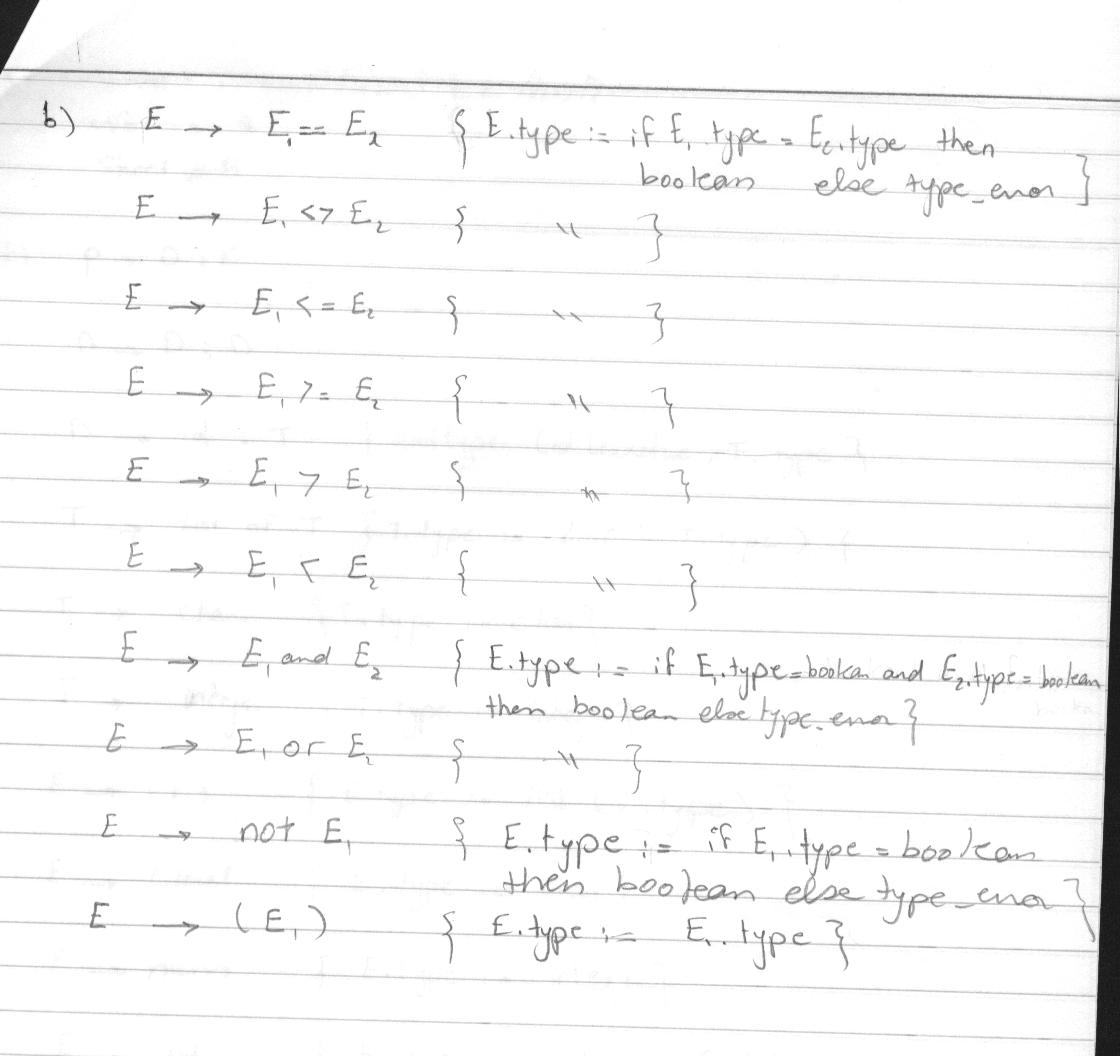 b) E → E₁ == E₂ { E.type := if E₁.type = E₂.type then
boolean else type_error }
E → E₁ <> E₂ { " }
E → E₁ <= E₂ { " }
E → E₁ >= E₂ { " }
E → E₁ > E₂ { " }
E → E₁ < E₂ { " }
E → E₁ and E₂ { E.type := if E₁.type = boolean and E₂.type = boolean
then boolean else type_error }
E → E₁ or E₂ { " }
E → not E₁ { E.type := if E₁.type = boolean
then boolean else type_error }
E → (E₁) { E.type := E₁.type }